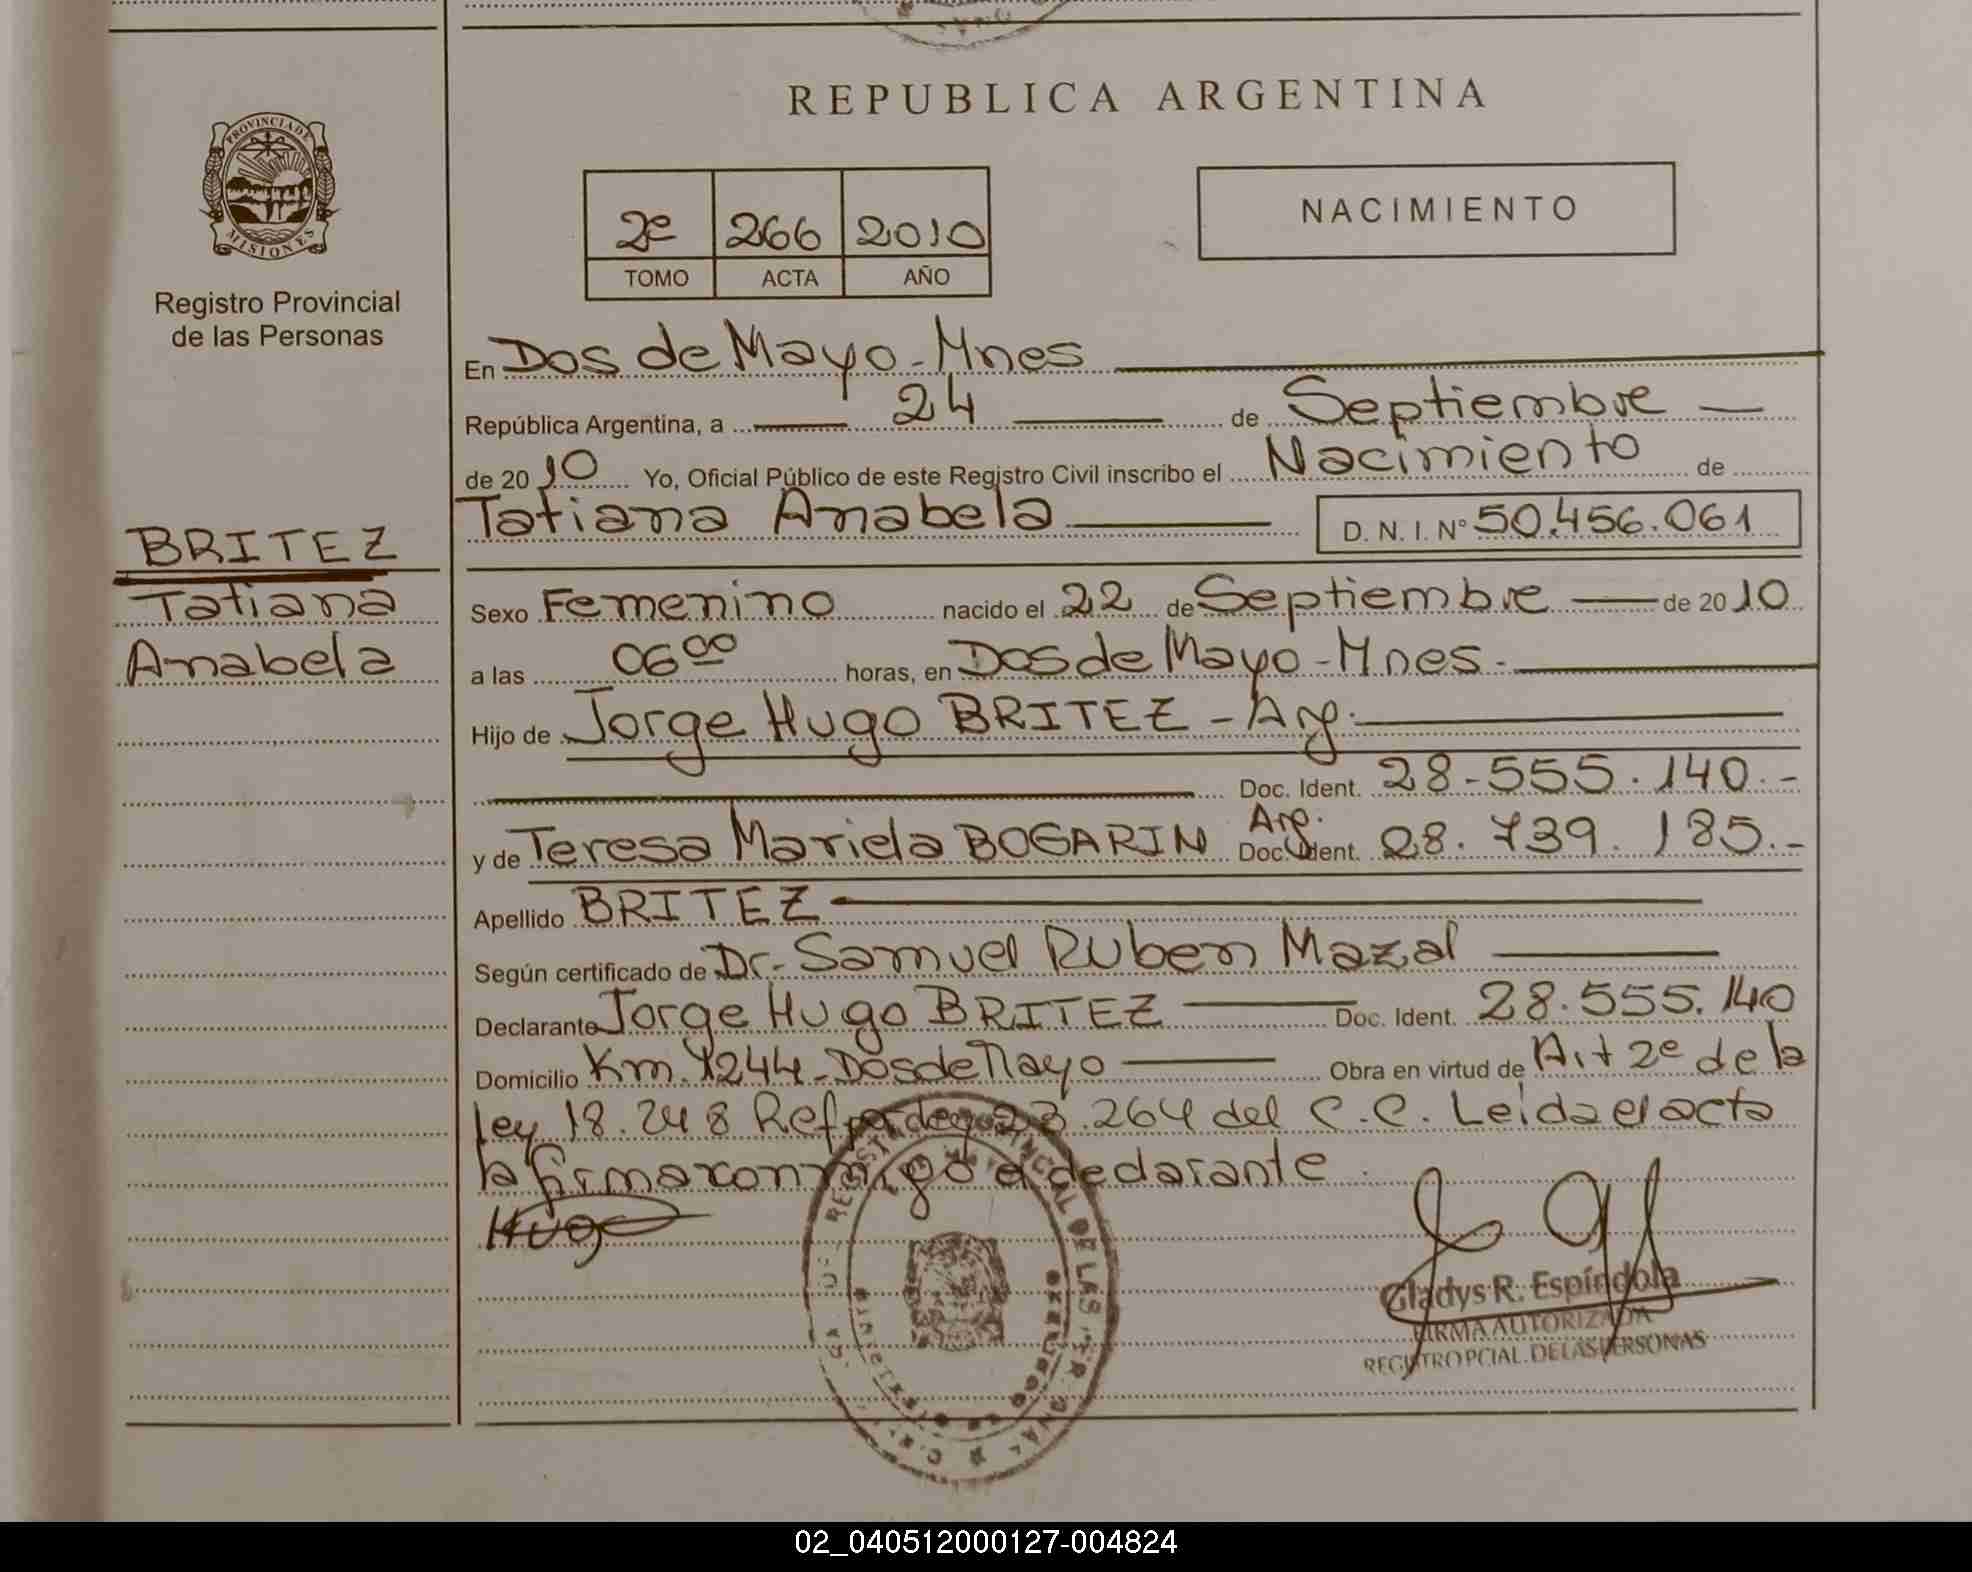 REPUBLICA ARGENTINA
PROVINCIA DE
MISIONES
Registro Provincial
de las Personas
2º 266 2010
TOMO ACTA AÑO
NACIMIENTO
En Dos de Mayo - Mnes
República Argentina, a 24 de Septiembre
de 2010 Yo, Oficial Público de este Registro Civil inscribo el Nacimiento de
Tatiana Anabela D. N. I. Nº 50.456.061
BRITEZ
Tatiana
Anabela
Sexo Femenino nacido el 22 de Septiembre de 2010
a las 06 00 horas, en Dos de Mayo - Mnes.
Hijo de Jorge Hugo BRITEZ - Arg.
Doc. Ident. 28-555.140.-
y de Teresa Mariela BOGARIN Arg. Doc. Ident. 28.739.185.-
Apellido BRITEZ
Según certificado de Dr. Samuel Ruben Mazal
Declarante Jorge Hugo BRITEZ Doc. Ident. 28.555.140
Domicilio Km. 1244 - Dos de Mayo Obra en virtud de Art 2º de la
ley 18.248 Ref 23.264 del C.C. Leida el acta
la firma conmigo el declarante.
Hugo
Gladys R. Espíndola
FIRMA AUTORIZADA
REGISTRO PCIAL. DE LAS PERSONAS
02_040512000127-004824